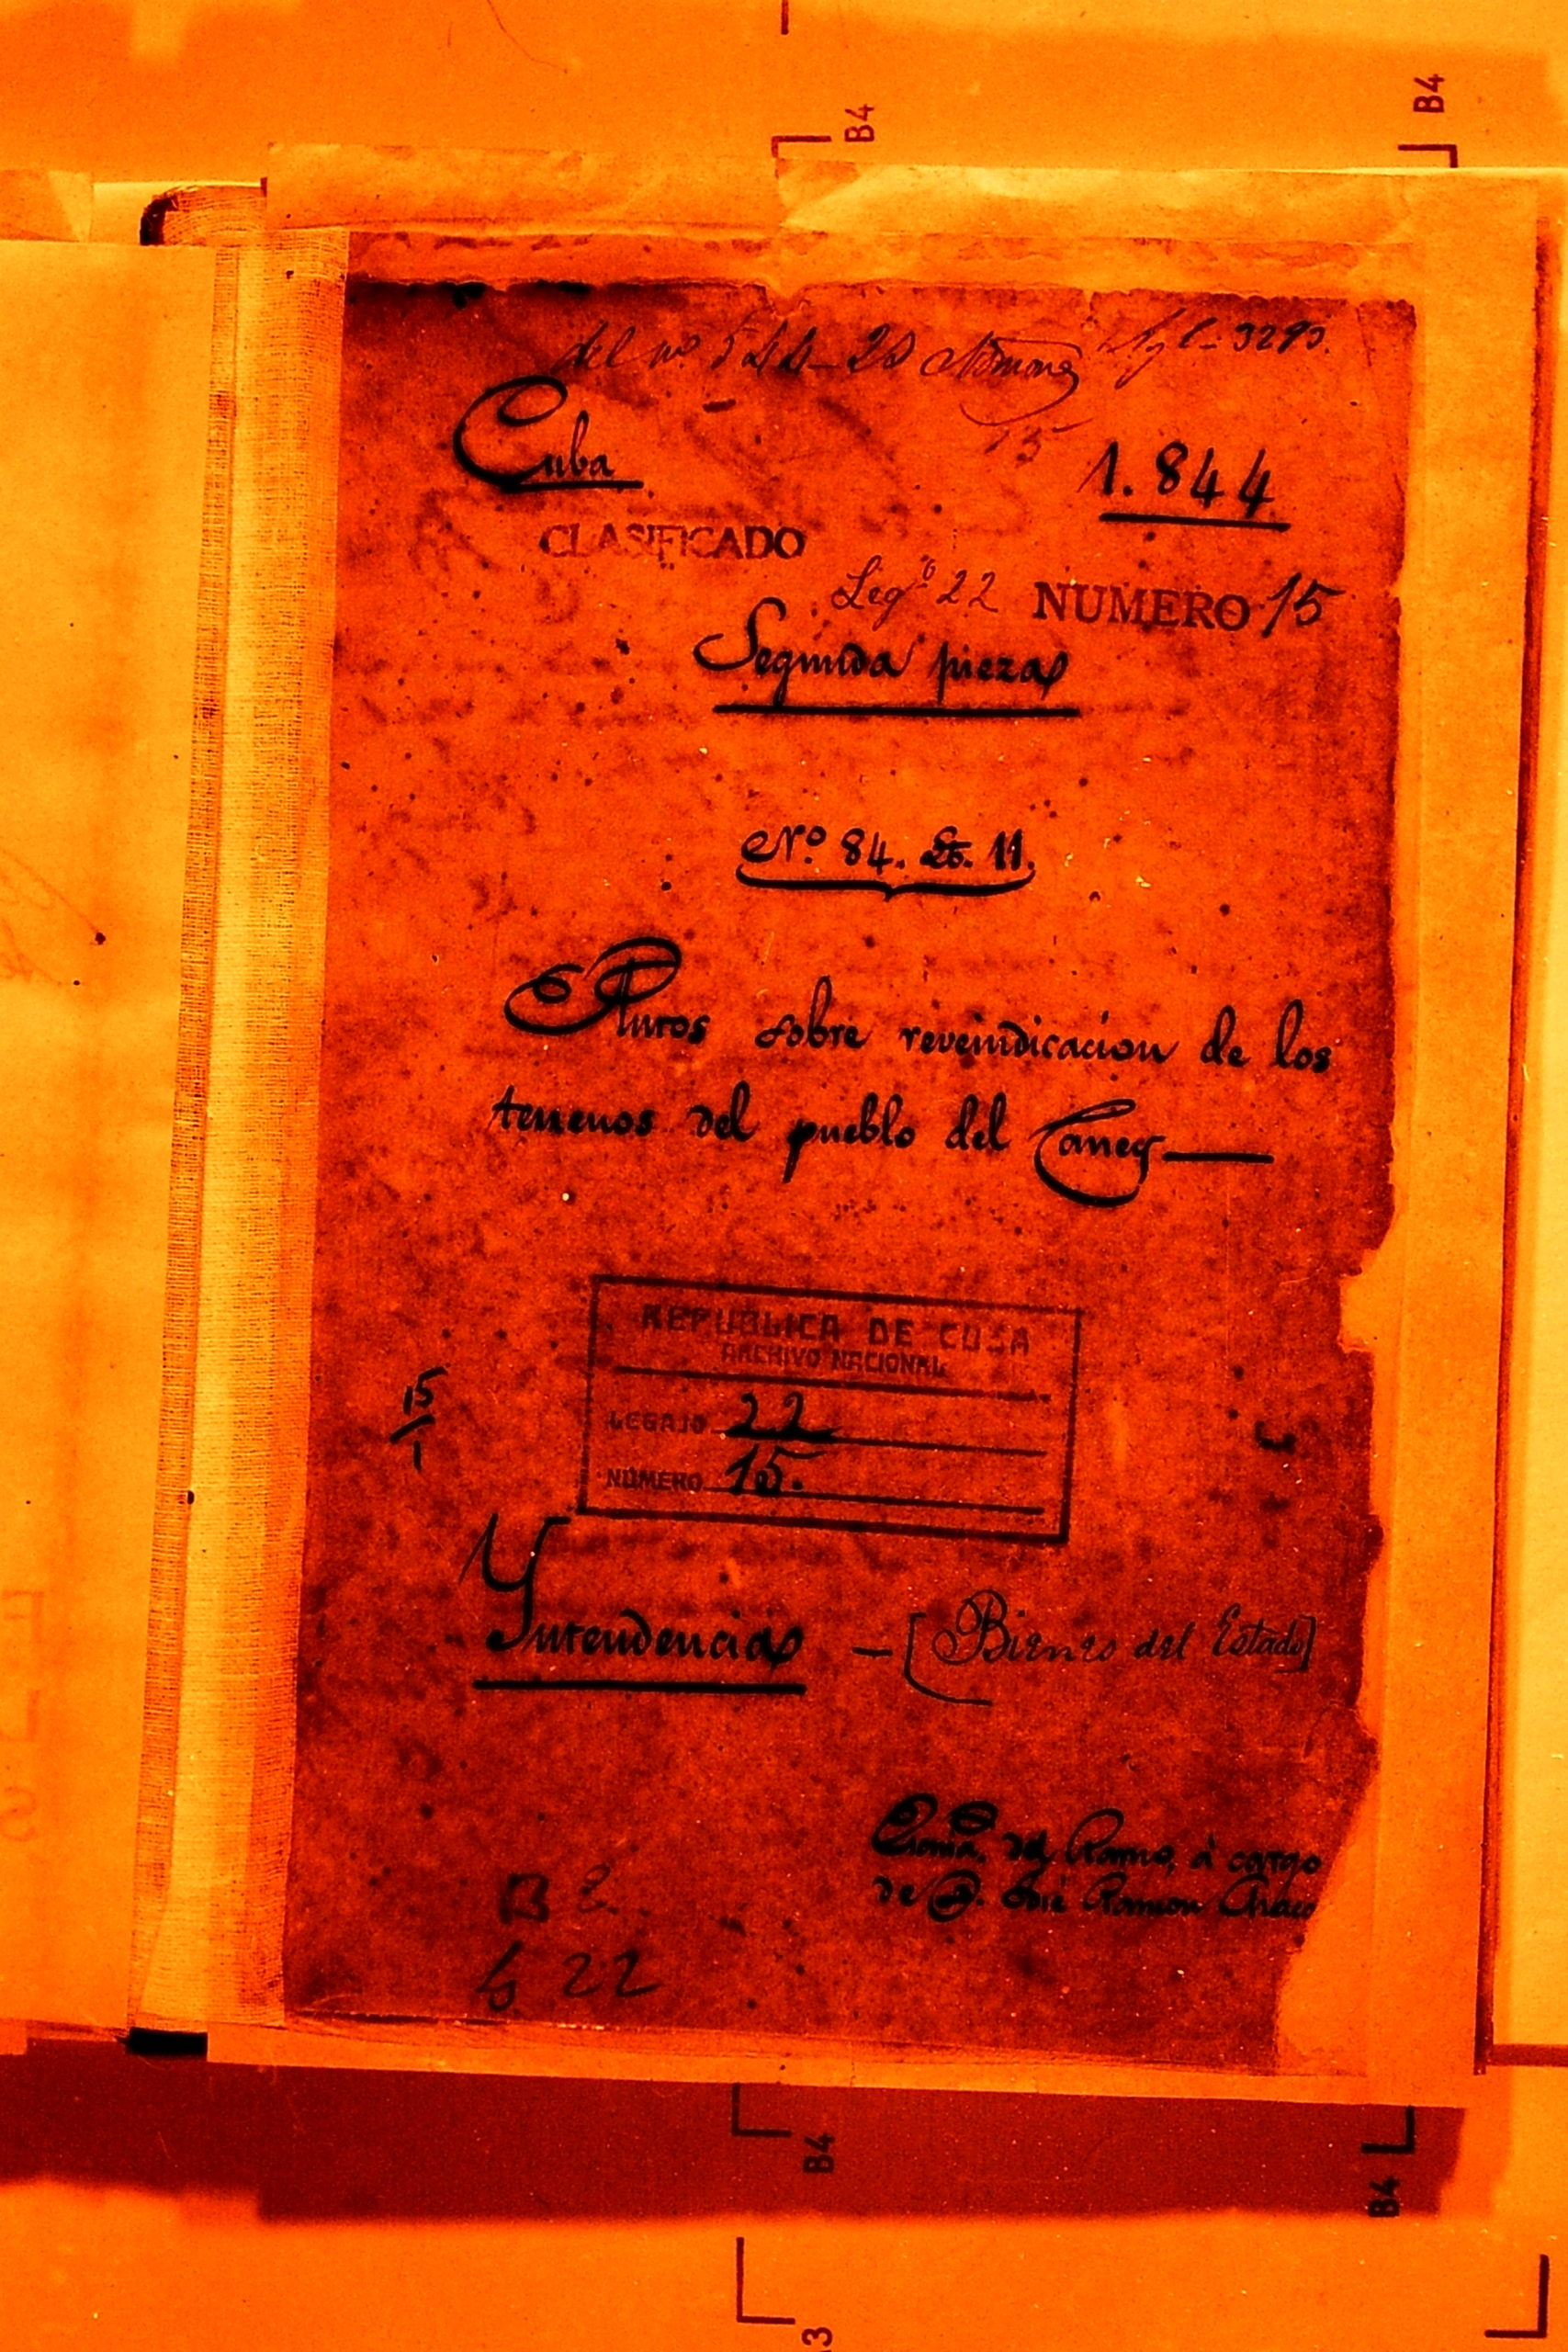 B4
B4
del no. 3293.
Cuba
15
1.844
CLASIFICADO
Legº 22 NUMERO 15
Segunda pieza
Nº 84. 11.
Autos sobre reveindicacion de los
terrenos del pueblo del Caney
REPUBLICA DE CUBA
ARCHIVO NACIONAL
LEGAJO 22
NUMERO 15.
15
1
Yntendencia - [Bienes del Estado]
Esnia. del Ramo, à cargo
de D. José Ramon
B
22
B4
B4